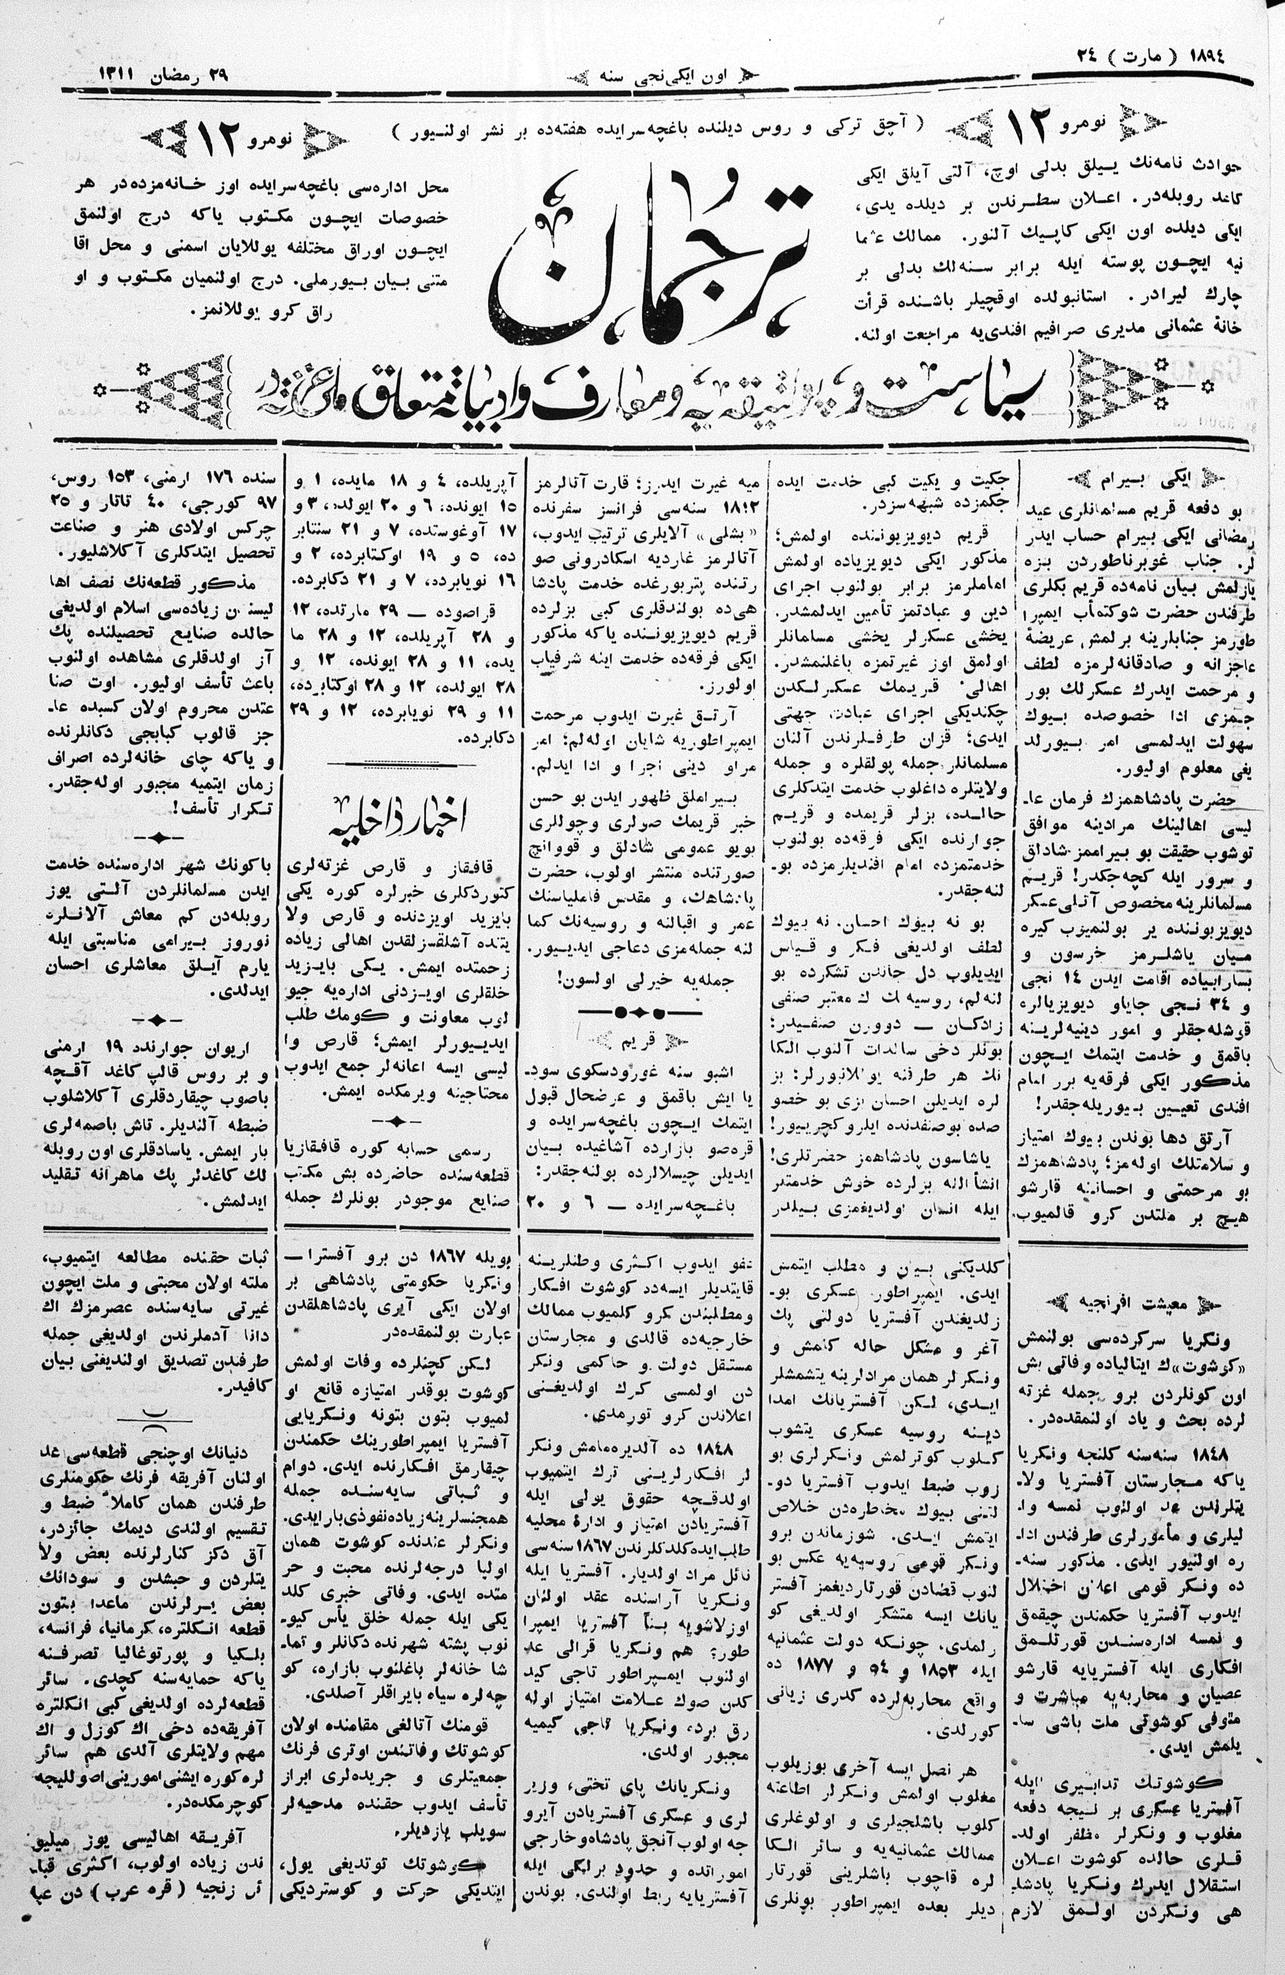 ١٨٩٤ ( مارت ) ٢٤
اون ایکی نجی سنه
٢٩ رمضان ١٣١١
نومرو ١٢
( آچق ترکی و روس دیلنده باغچه‌سرایده هفته‌ده بر نشر اولنیور )
نومرو ١٢
حوادث نامه‌نك ییلق بدلی اوچ، آلتی آیلق ایکی
کاغد روبله‌در. اعلان سطرندن بر دیلده یدی،
ایکی دیلده اون ایکی کاپیك آلنور. ممالك عثما
نیه ایچون پوسته ایله برابر سنه‌لك بدلی بر
چارك لیرادر. استانبولده اوقچیلر باشنده قرأت
خانهٔ عثمانی مدیری صرافیم افندی‌یه مراجعت اولنه.
ترجمان
محل اداره‌سی باغچه‌سرایده اوز خانه‌مزده‌در هر
خصوصات ایچون مکتوب یاکه درج اولنمق
ایچون اوراق مختلفه یوللایان اسمنی و محل اقا
متنی بیان بیورملی. درج اولنمیان مکتوب و او
راق کرو یوللانمز.
سیاست و پولتیقه‌یه و معارف و ادبیاته متعلق ملی غزته‌در
ایکی بیرام
بو دفعه قریم مسلمانلری عید
رمضانی ایکی بیرام حساب ایدر
لر. جناب غوبرناطوردن بزه
یازلمش بیان نامه‌ده قریم بکلری
طرفندن حضرت شوکتمآب ایمپرا
طورمز جنابلرینه برلمش عریضهٔ
عاجزانه و صادقانه‌لرمزه لطف
و مرحمت ایدرك عسکرلك بور
جمزی ادا خصوصده بیوك
سهولت ایدلمسی امر بیورلد
یغی معلوم اولیور.
حضرت پادشاهمزك فرمان عا‍
لیسی اهالینك مرادینه موافق
توشوب حقیقت بو بیراممز شاداق
و سرور ایله کچه‌جکدر! قریم
مسلمانلرینه مخصوص آتلی عسکر
دیویزیونده یر بولنمیزب کیره
میان یاشلرمز خرسون و
بسارابیاده اقامت ایدن ١٤ نجی
و ٣٤ نجی جایاو دیویزیالره
قوشله‌جقلر و امور دینیه‌لرینه
باقمق و خدمت ایتمك ایچون
مذکور ایکی فرقه‌یه برر امام
افندی تعیین بیوریله‌جقدر!
آرتق دها بوندن بیوك امتیاز
و سلامتلك اوله‌مز؛ پادشاهمزك
بو مرحمتی و احسانینه قارشو
هیچ بر ملتدن کرو قالمیوب
جکیت و یکیت کبی خدمت ایده
جکمزده شبهه سزدر.
قریم دیویزیونده اولمش؛
مذکور ایکی دیویزیاده اولمش
اماملرمز برابر بولنوب اجرای
دین و عبادتمز تأمین ایدلمشدر.
یخشی عسکرلر یخشی مسلمانلر
اولمق اوز غیرتمزه باغلنمشدر.
اهالی قریمك عسکرلکدن
چکندیکی اجرای عبادت جهتی
ایدی؛ قزان طرفلرندن آلنان
مسلمانلر جمله پولقلره و جمله
ولایتلره داغلوب خدمت ایتدکلری
حالده، بزلر قریمده و قریم
جوارنده ایکی فرقه‌ده بولنوب
خدمتمزده امام افندیلرمزده بو‍
لنه‌جقدر.
بو نه بیوك احسان. نه بیوك
لطف اولدیغی فکر و قیاس
ایدیلوب دل جاندن تشکرده بو
لنه‌لم، روسیه‌نك ك معتبر صنفی
زادکان — دوورن صنفیدر:
بونلر دخی سالدات آلنوب الکا
نك هر طرفنه یوللانیورلر: بز
لره ایدیلن احسان بزی بو خصو
صده بو صنفدنده ایلرو کچریور!
یاشاسون پادشاهمز حضرتلری!
انشأالله بزلرده خوش خدمتدر
ایله انسان اولدیغمزی بیلدر
میه غیرت ایدرز؛ قارت آتالرمز
١٨١٢ سنه‌سی فرانسز سفرنده
«بشلی» آلایلری ترتیب ایدوب،
آتالرمز غاردیه اسکادرونی صو
رتنده پتربورغده خدمت پادشا
هی‌ده بولندقلری کبی بزلرده
قریم دیویزیوننده یاکه مذکور
ایکی فرقه‌ده خدمت اینه شرفیاب
اولورز.
آرتق غیرت ایدوب مرحمت
ایمپراطوریه شایان اوله‌لم؛ امر
مراو دینی اجرا و ادا ایدلم.
بیراملق ظهور ایدن بو حسن
خبر قریمك صولری و چوللری
بویو عمومی شادلق و قووانچ
صورتنده منتشر اولوب، حضرت
پادشاهك، و مقدس فاملیاسنك
عمر و اقبالنه و روسیه‌نك کما
لنه جمله‌مزی دعاجی ایدییور.
جمله‌یه خیرلی اولسون!
قریم
اشبو سنه غورودسکوی سود‍
یا ایش باقمق و عرضحال قبول
ایتمك ایچون باغچه‌سرایده و
قره‌صو بازارده آشاغیده بیان
ایدیلن چیسلالرده بولنه‌جقدر:
باغچه‌سرایده — ٦ و ٢٠
آپریلده، ٤ و ١٨ مایده، ١ و
١٥ ایونده، ٦ و ٢٠ ایولده، ٣ و
١٧ آوغوستده، ٧ و ٢١ سنتابر
ده، ٥ و ١٩ اوکتابرده، ٢ و
١٦ نویابرده، ٧ و ٢١ دکابرده.
قراصوده — ٢٩ مارتده، ١٢
و ٢٨ آپریلده، ١٢ و ٢٨ ما
یده، ١١ و ٢٨ ایونده، ١٢ و
٢٨ ایولده، ١٢ و ٢٨ اوکتابرده،
١١ و ٢٩ نویابرده، ١٢ و ٢٩
دکابرده.
اخبار داخلیه
قافقاز و قارص غزته‌لری
کتوردکلری خبرلره کوره یکی
بایزید اویزدنده و قارص ولا
یتده آشلقسزلقدن اهالی زیاده
زحمتده ایمش. یکی بایزید
خلقلری اویزدنی اداره‌یه جیو
لوب معاونت و کومك طلب
ایدیورلر ایمش؛ قارص وا
لیسی ایسه اعانه‌لر جمع ایدوب
محتاجینه ویرمکده ایمش.
رسمی حسابه کوره قافقازیا
قطعه‌سنده حاضرده بش مکتب
صنایع موجودر بونلرك جمله
سنده ١٧٦ ارمنی، ١٥٣ روس،
٩٧ کورجی، ٤٠ تاتار و ٢٥
چرکس اولادی هنر و صناعت
تحصیل ایتدکلری آکلاشلیور.
مذکور قطعه‌نك نصف اها
لیسنن زیاده‌سی اسلام اولدیغی
حالده صنایع تحصیلنده پك
آز اولدقلری مشاهده اولنوب
باعث تأسف اولیور. اوت صنا
عتدن محروم اولان کسبده عا‍
جز قالوب کبابجی دکانلرنده
و یاکه چای خانه‌لرده اصراف
زمان ایتمیه مجبور اوله‌جقدر.
تکرار تأسف!
باکونك شهر اداره‌سنده خدمت
ایدن مسلمانلردن آلتی یوز
روبله‌دن کم معاش آلانلره
نوروز بیرامی مناسبتی ایله
یارم آیلق معاشلری احسان
ایدلدی.
اریوان جوارندد ١٩ ارمنی
و بر روس قالپ کاغد آقچه
باصوب چیقاردقلری آکلاشلوب
ضبطه آلندیلر. تاش باصمه‌لری
بار ایمش. یاسادقلری اون روبله
لك کاغدلر پك ماهرانه تقلید
ایدلمش.
معیشت افرنجیه
ونکریا سرکرده‌سی بولنمش
«کوشوت»ك ایتالیاده وفاتی بش
اون کونلردن برو جمله غزته
لرده بحث و یاد اولنمقده‌در.
١٨٤٨ سنه‌سنه کلنجه ونکریا
یاکه مجارستان آفستریا ولا‍
یتلرندن عد اولنوب نمسه وا‍
لیلری و مأمورلری طرفندن ادا‍
ره اولنیور ایدی. مذکور سنه‍
ده ونکر قومی اعلان اختلال
ایدوب آفستریا حکمندن چیقمق
و نمسه اداره‌سندن قورتلمق
افکاری ایله آفستریایه قارشو
عصیان و محاربه‌یه مباشرت و
متوفی کوشوتی ملت باشی سا‍
یلمش ایدی.
کوشوتك تدابیری ایله
آفستریا عسکری بر نیجه دفعه
مغلوب و ونکرلر مظفر اولد‍
قلری حالده کوشوت اعلان
استقلال ایدرك ونکریا پادشا‍
هی ونکردن اولمق لازم
کلدیکنی بیان و مطلب ایتمش
ایدی. ایمپراطور عسکری بو‍
زلدیغندن آفستریا دولتی پك
آغر و مشکل حاله کلمش و
ونکرلر همان مرادلرینه یتشمشلر
ایدی، لکن آفستریانك امدا
دینه روسیه عسکری یتشوب
کلوب کوترلمش ونکرلری بو
زوب ضبط ایدوب آفستریا دو‍
لتنی بیوك مخاطره‌دن خلاص
ایتمش ایدی. شوزماندن برو
ونکر قومی روسیه‌یه عکس بو
لنوب قضادن قورتاردیغمز آفستر
یانك ایسه متشکر اولدیغی کو
رلمدی. چونکه دولت عثمانیه
ایله ١٨٥٣ و ٥٤ و ١٨٧٧ ده
واقع محاربه‌لرده کدری زیانی
کورلدی.
هر نصل ایسه آخری بوزیلوب
مغلوب اولمش ونکرلر اطاعته
کلوب باشلجیلری و اولوغلری
ممالك عثمانیه‌یه و سائر الکا
لره قاچوب باشلرینی قورتار
دیلر بعده ایمپراطور بونلری
نفو ایدوب اکثری وطنلرینه
قایتدیلر ایسه‌دد کوشوت افکار
و مطلبندن کرو کلمیوب ممالك
خارجیه‌ده قالدی و مجارستان
مستقل دولت و حاکمی ونکر
دن اولمسی کرك اولدیغنی
اعلاندن کرو تورمدی.
١٨٤٨ ده آلدیره‌مامش ونکر
لر افکارلرینی ترك ایتمیوب
اولدقچه حقوق یولی ایله
آفستریادن امتیاز و ادارهٔ محلیه
طالب ایده کلدکلرندن ١٨٦٧ سنه‌سی
نائل مراد اولدیلر. آفستریا ایله
ونکریا آراسنده عقد اولنان
اوزلاشویه بنأ آفستریا ایمپرا
طوری هم ونکریا قرالی عد
اولنوب ایمپراطور تاجی کید
کدن صوك علامت امتیاز اوله
رق برد، ونکریا تاجی کیمیه
مجبور اولدی.
ونکریانك پای تختی، وزیر
لری و عسکری آفستریادن آیرو
جه اولوب آنجق پادشاه و خارجی
اموراتده و حدود برلکی ایله
آفستریایه ربط اولندی. بوندن
بویله ١٨٦٧ دن برو آفسترا —
ونکریا حکومتی پادشاهی بر
اولان ایکی آیری پادشاهلقدن
عبارت بولنمقده‌در
لکن کچنلرده وفات اولمش
کوشوت بوقدر امتیازه قانع او
لمیوب بتون بتونه ونکریایی
آفستریا ایمپراطورینك حکمندن
چیقارمق افکارنده ایدی. دوام
و ثباتی سایه‌سنده جمله
همجنسلرینه زیاده نفوذی بار ایدی.
ونکرلر عندنده کوشوت همان
اولیا درجه‌لرنده محبت و حر
متده ایدی. وفاتی خبری کلد
یکی ایله جمله خلق یأس کیو‍
نوب پشته شهرنده دکانلر و تما‍
شا خانه‌لر باغلنوب بازاره، کو
چه‌لره سیاه بایراقلر آصلدی.
قومنك آتالغی مقامنده اولان
کوشوتك وفاتندن اوتری فرنك
جمعیتلری و جریده‌لری ابراز
تأسف ایدوب حقنده مدحیه‌لر
سویلب یازدیلر.
کوشوتك توتدیغی یول،
ایتدیکی حرکت و کوستردیکی
ثبات حقنده مطالعه ایتمیوب،
ملته اولان محبتی و ملت ایچون
غیرتی سایه‌سنده عصرمزك اك
دانا آدملرندن اولدیغی جمله
طرفدن تصدیق اولندیغنی بیان
کافیدر.
دنیانك اوچنجی قطعه‌سی عد
اولنان آفریقه فرنك حکومتلری
طرفندن همان کاملا ضبط و
تقسیم اولندی دیمك جائزدر،
آق دکز کنارلرنده بعض ولا
یتلردن و حبشدن و سودانك
بعض یرلرندن ماعدا بتون
قطعه انکلتره، کرمانیا، فرانسه،
بلکیا و پورتوغالیا تصرفنه
یاکه حمایه‌سنه کچدی. سائر
قطعه‌لرده اولدیغی کبی انکلتره
آفریقه‌ده دخی اك کوزل و اك
مهم ولایتلری آلدی هم سائر
لره کوره ایشنی امورینی اصولیجه
کوچرمکده‌در.
آفریقه اهالیسی یوز میلیو
ندن زیاده اولوب، اکثری قبا‍
ئل زنجیه (قره عرب) دن عبا